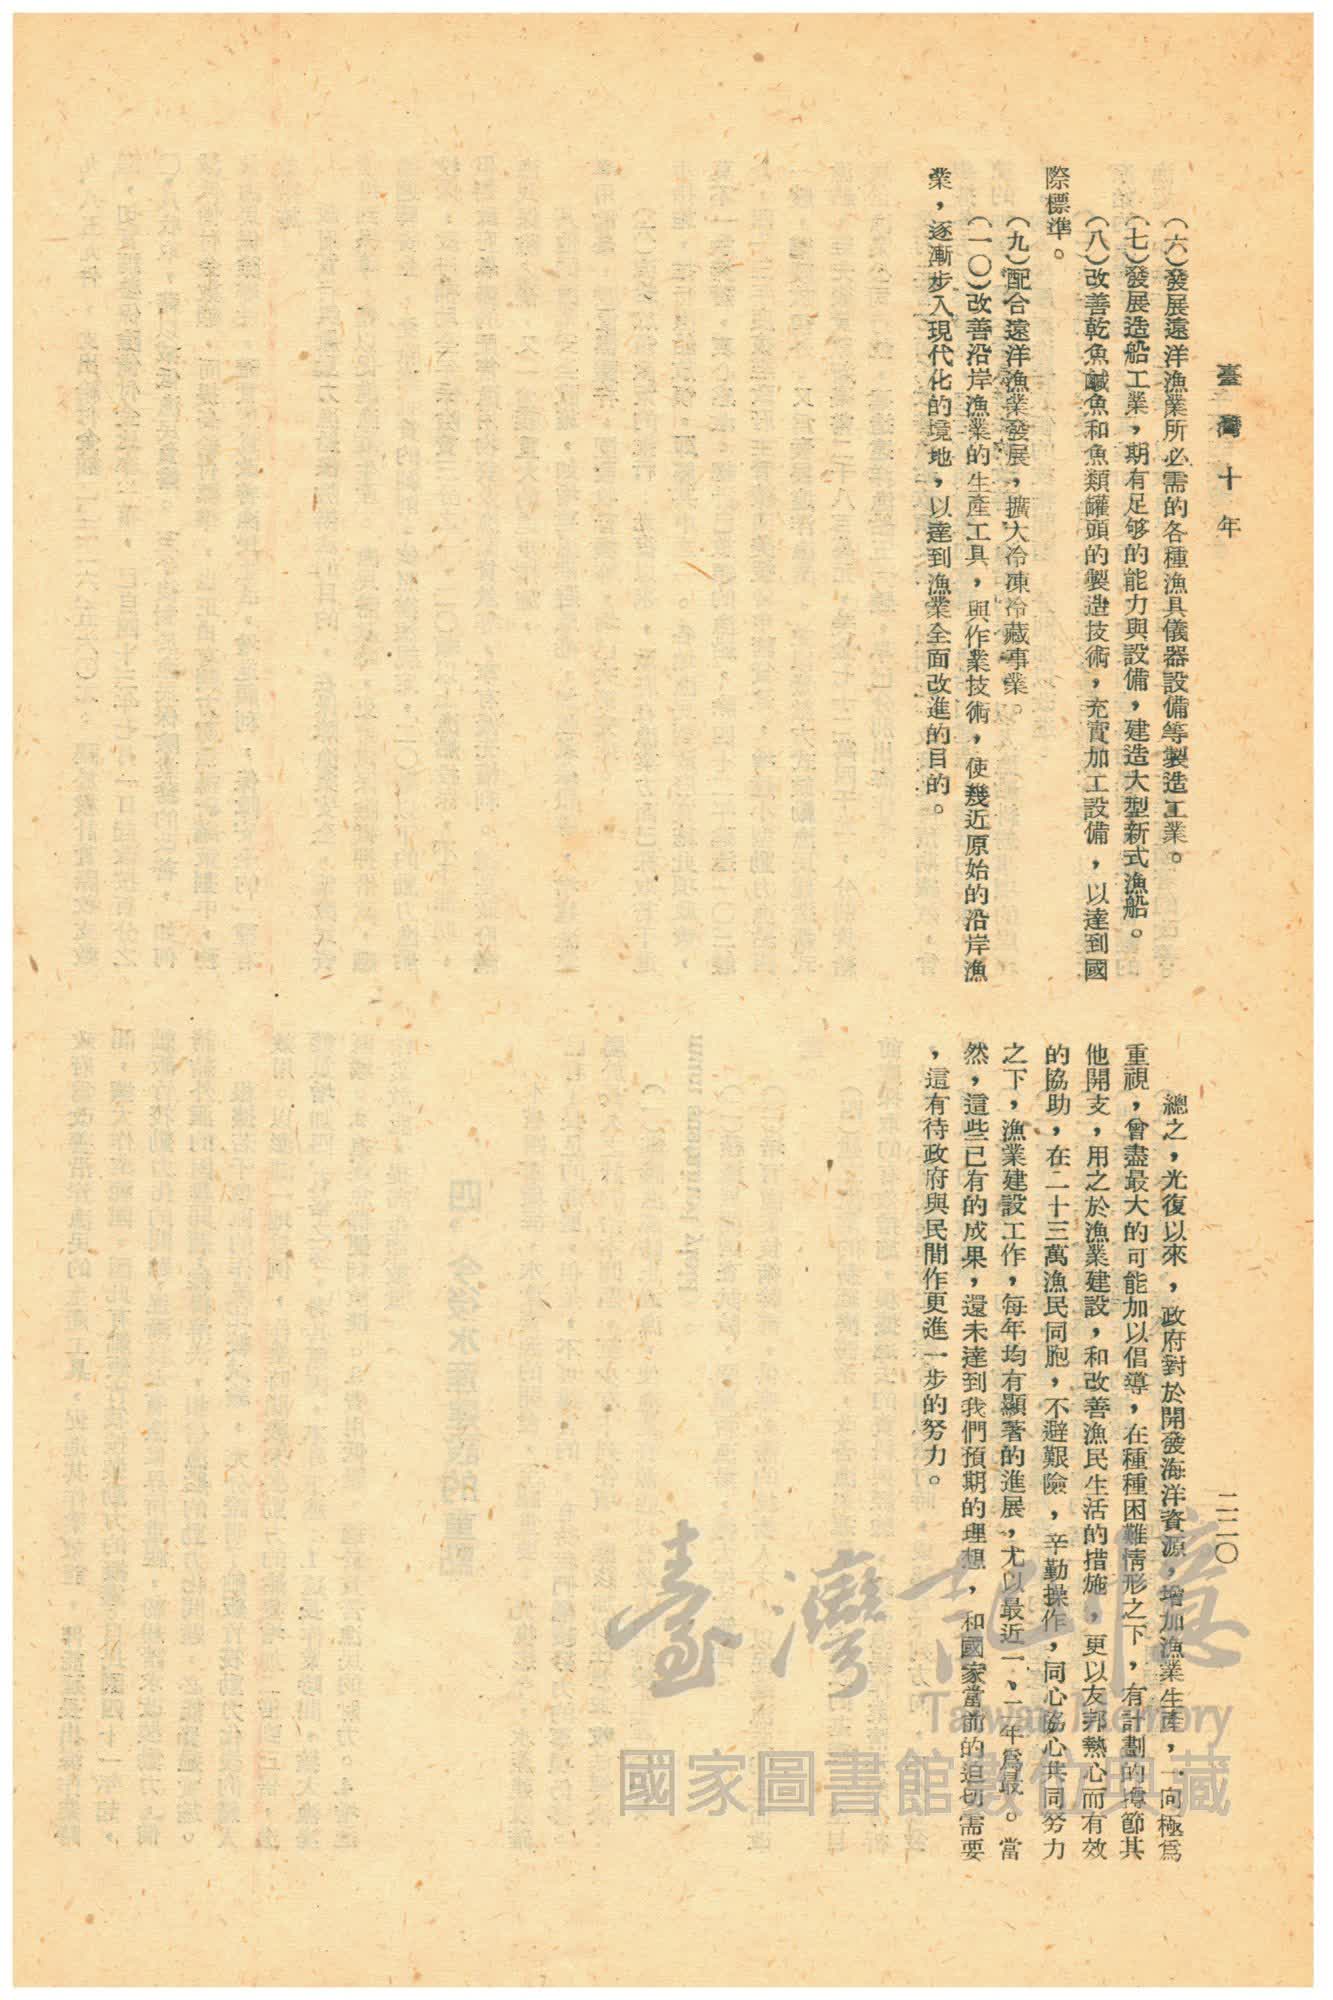 臺灣十年
二二〇
(六)發展遠洋漁業所必需的各種漁具儀器設備等製造工業。
(七)發展造船工業,期有足够的能力與設備,建造大型新式漁船。
(八)改善乾魚鹹魚和魚類罐頭的製造技術,充實加工設備,以達到國
際標準。
(九)配合遠洋漁業發展,擴大冷凍冷藏事業。
(一〇)改善沿岸漁業的生產工具,與作業技術,使幾近原始的沿岸漁
業,逐漸步入現代化的境地,以達到漁業全面改進的目的。
總之,光復以來,政府對於開發海洋資源,增加漁業生產,一向極爲
重視,曾盡最大的可能加以倡導,在種種困難情形之下,有計劃的撙節其
他開支,用之於漁業建設,和改善漁民生活的措施,更以友邦熱心而有效
的協助,在二十三萬漁民同胞,不避艱險,辛勤操作,同心協心共同努力
之下,漁業建設工作,每年均有顯著的進展,尤以最近一、二年爲最。當
然,這些已有的成果,還未達到我們預期的理想,和國家當前的迫切需要
,這有待政府與民間作更進一步的努力。
臺灣記憶
Taiwan Memory
國家圖書館數位典藏